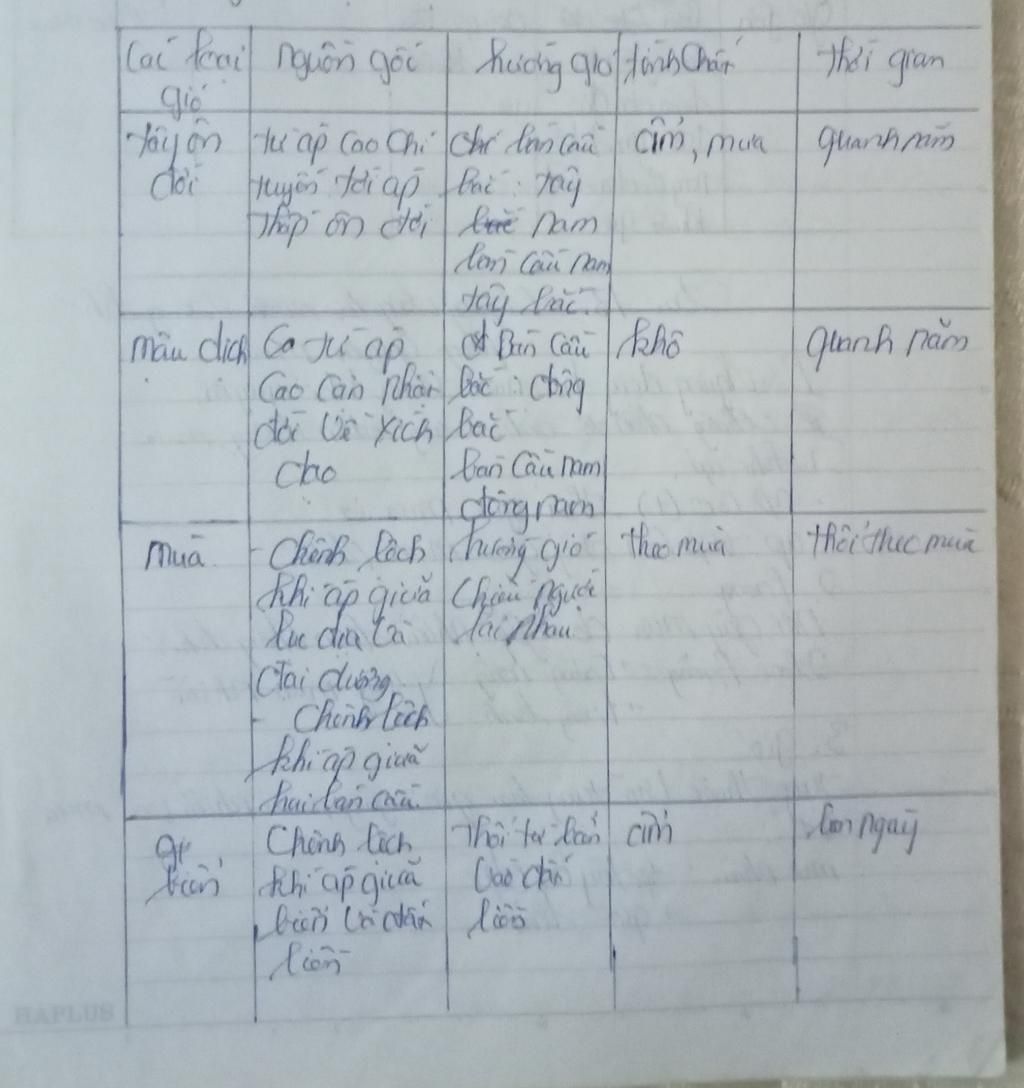 Các loại gió
nguồn gốc
hướng gió
tính chất
thời gian
tây ôn đới
từ áp cao chí
tuyến tới áp
thấp ôn đới
bán cầu
bắc: tây
nam
bán cầu nam
tây bắc.
ẩm, mưa
quanh năm
mậu dịch
từ áp
cao cận nhiệt
đới về xích
đạo
Bán cầu
bắc: đông
bắc
bán cầu nam
đông nam
khô
quanh năm
mùa
- Chênh lệch
khí áp giữa
lục địa và
đại dương
- Chênh lệch
khí áp giữa
hai bán cầu.
hướng gió
chiều ngược
lại nhau
theo mùa
thổi theo mùa
biển
Chênh lệch
khí áp giữa
biển và đất
liền
Thổi từ biển
vào đất
liền
ẩm
ban ngày
HAPLUS